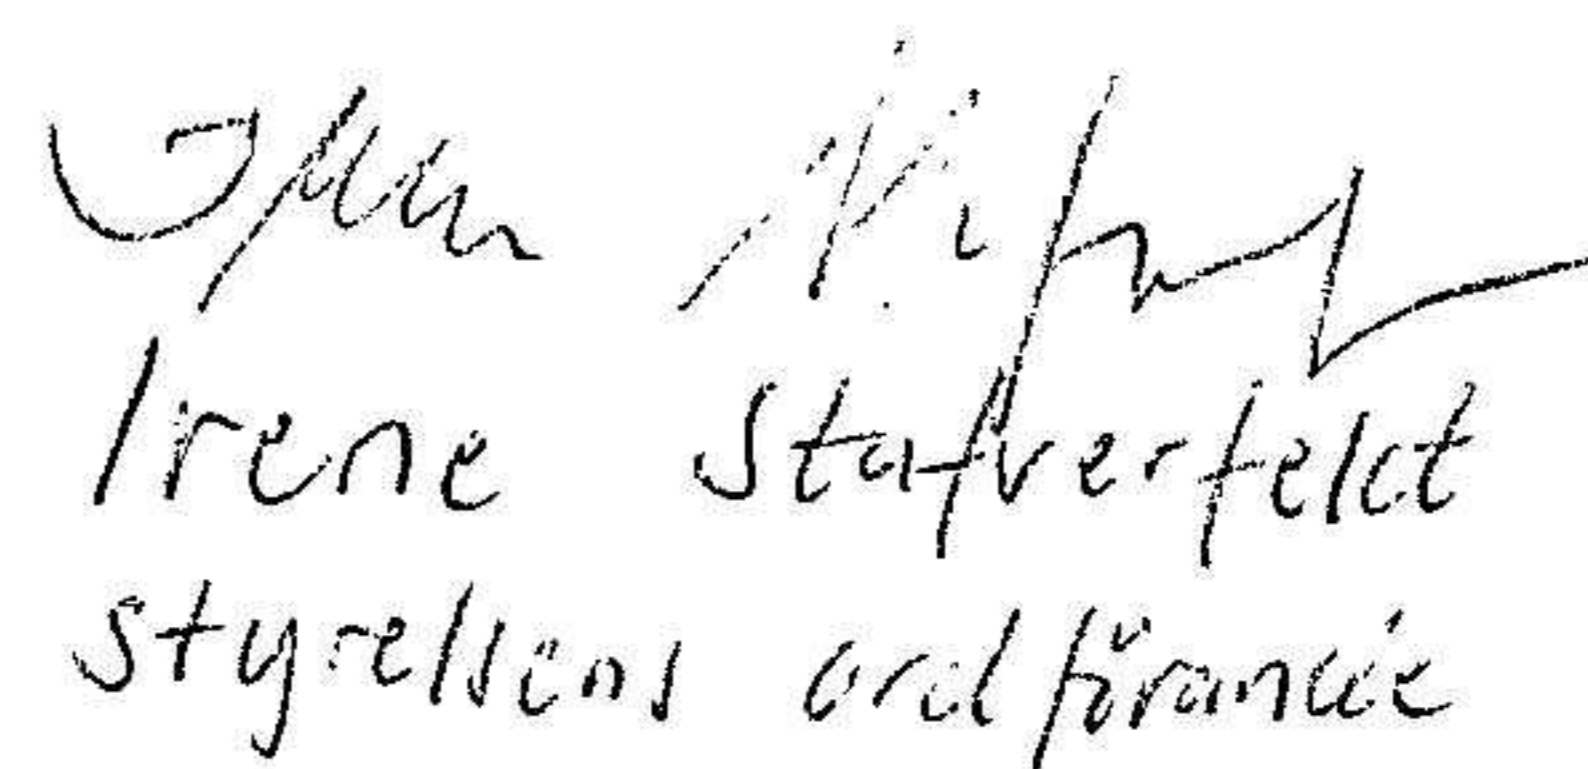 Irene Stafverfeldt
styrelsens ordförande